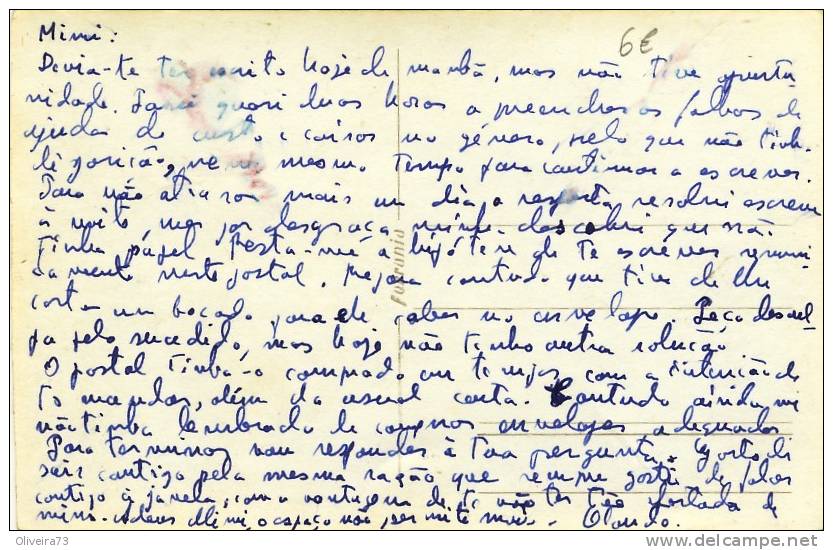 Mimi:
6€
Devia-te ter escrito hoje de manhã, mas não tive oportu-
nidade. Passei quasi duas horas a preencher os folhos de
ajudas de custo e coisas no género, pelo que não tinha
disposição, nem mesmo tempo para continuar a escrever.
Para não atrasar mais um dia a resposta resolvi escrever
à noite, mas por desgraça minha descobri que não
tinha papel. Resta-me a hipótese de te escrever
neste postal. Repara contudo que tive de lhe
cortar um bocado para ele caber no envelope. Peço descul-
pa pelo sucedido, mas hoje não tenho outra solução
O postal tinha-o comprado em tempos com a intenção de
to mandar, além da usual carta. Contudo ainda me
não tinha lembrado de compras envelopes adequados.
Para terminar vou responder à tua pergunta. Gosto de
sair contigo pela mesma razão que sempre gostei de falar
contigo à janela, com a vantagem de te não ter tão afastada de
mim. Adeus Mimi, o espaço não permite mais. Orlando.
Fotrania
Oliveira73
delcampe.net